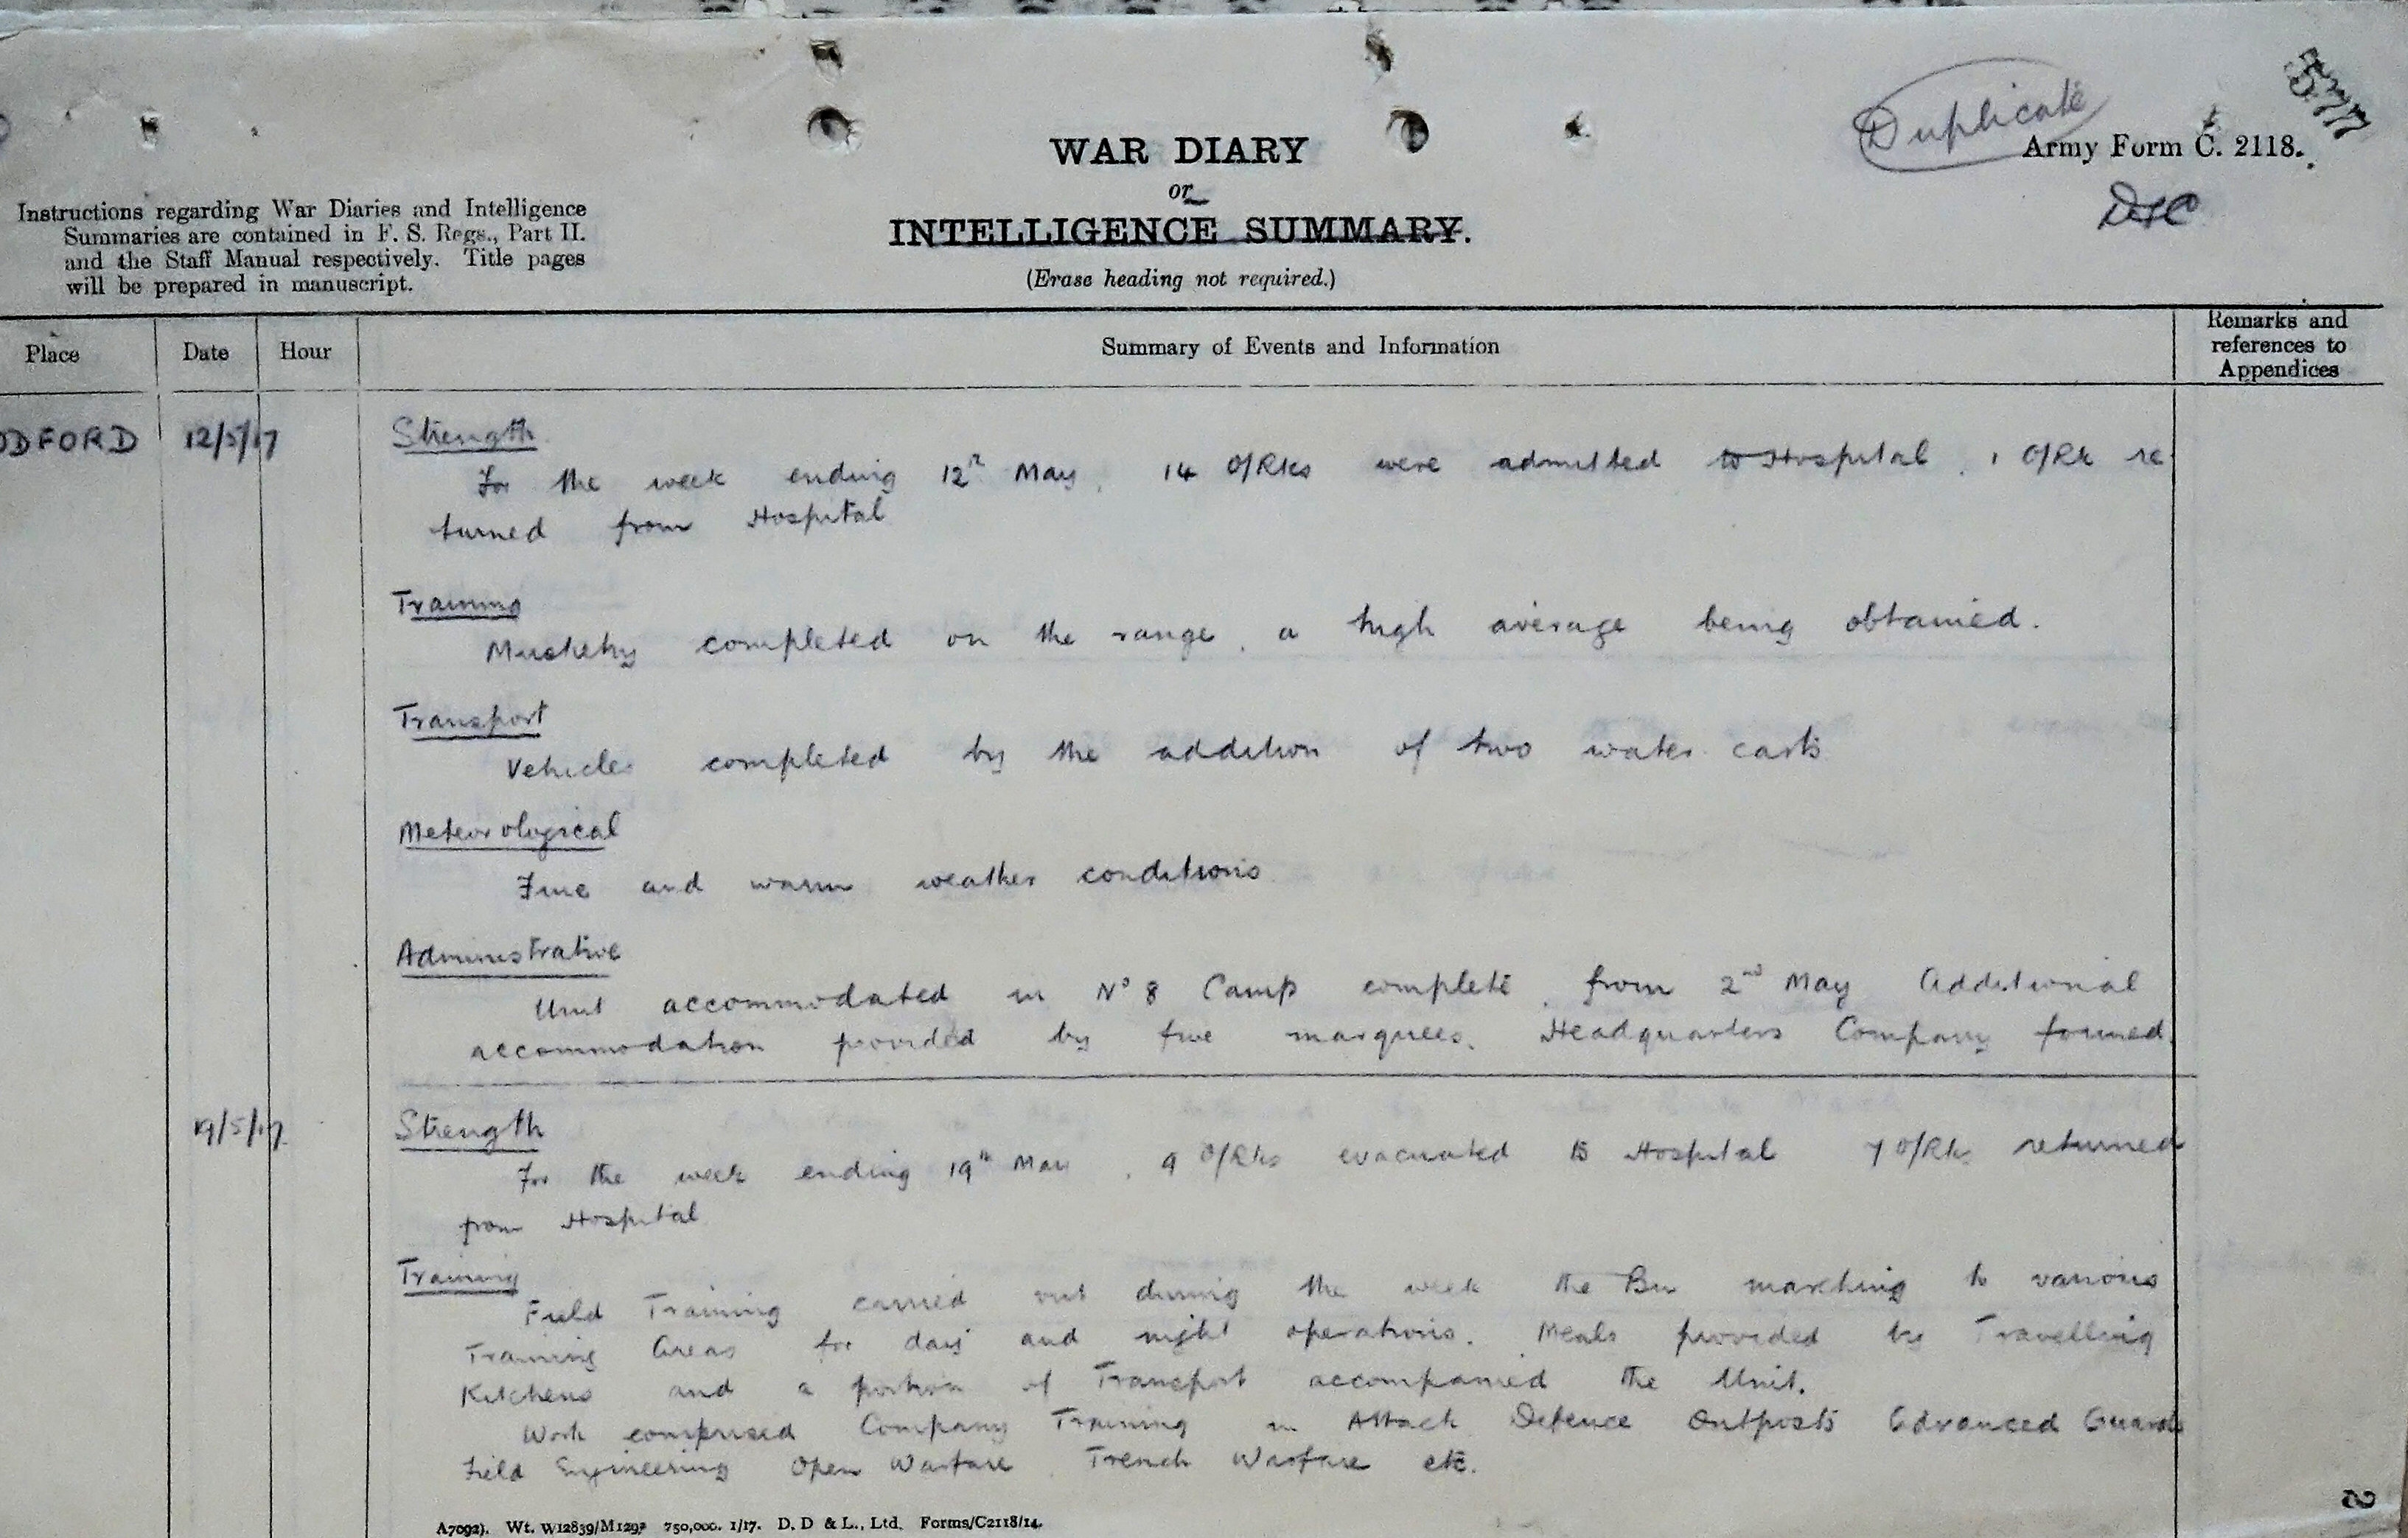 Duplicate
577
WAR DIARY
Army Form C. 2118.
or
INTELLIGENCE SUMMARY.
(Erase heading not required.)
Instructions regarding War Diaries and Intelligence
Summaries are contained in F. S. Regs., Part II.
and the Staff Manual respectively. Title pages
will be prepared in manuscript.
Place Date Hour Summary of Events and Information Remarks and
references to
Appendices
ODFORD 12/5/17 Strength
For the week ending 12th May, 14 O/Rks were admitted to Hospital, 1 O/Rk re
turned from Hospital
Training
Musketry completed on the range, a high average being obtained.
Transport
Vehicles completed by the addition of two water carts
Meteorological
Fine and warm weather conditions
Administrative
Unit accommodated in No 8 Camp complete, from 2nd May Additional
accommodation provided by five marquees. Headquarters Company formed.
19/5/17 Strength
For the week ending 19th May, 9 O/Rks evacuated to Hospital 7 O/Rks returned
from Hospital
Training
Field Training carried out during the week the Bn marching to various
Training Areas for day and night operations. Meals provided by Travelling
Kitchens and a portion of Transport accompanied the Unit.
Work comprised Company Training in Attack Defence Outposts Advanced Guards
Field Engineering Open Warfare, Trench Warfare etc.
A7092). Wt. W12839/M1293 750,000. 1/17. D. D & L., Ltd. Forms/C2118/14.